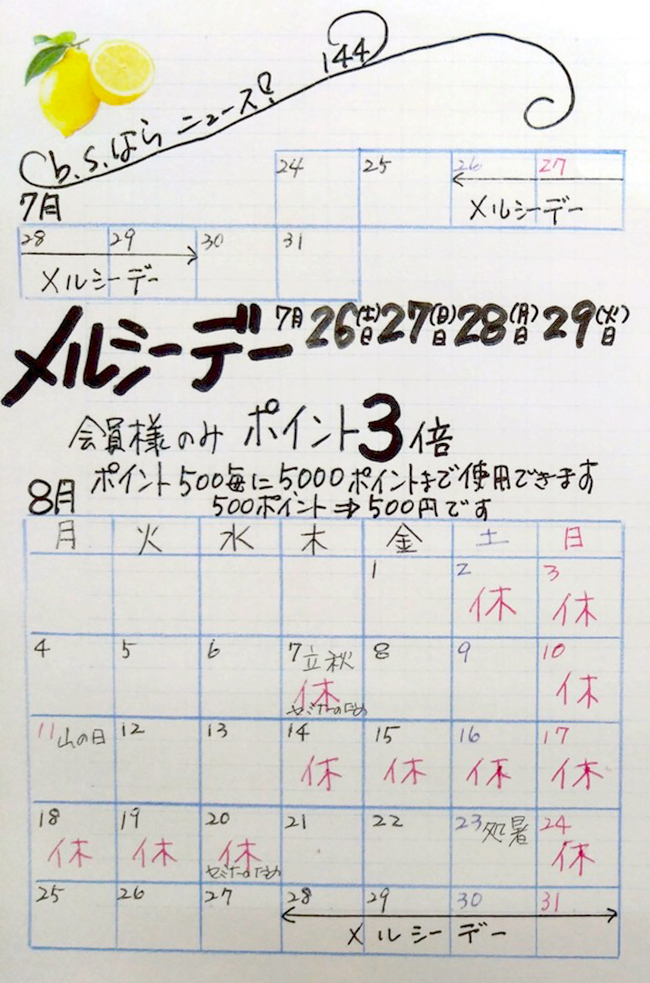 b.s.はら ニュース! 144
7月
24 25 26 27
メルシーデー
28 29 30 31
メルシーデー
メルシーデー 7月26日(土)27日(日)28日(月)29日(火)
会員様のみ ポイント3倍
ポイント500毎に5000ポイントまで使用できます
500ポイント⇒500円です
8月
月 火 水 木 金 土 日
1 2 3
休 休
4 5 6 7 立秋 8 9 10
休 休
セミナーのため
11 山の日 12 13 14 15 16 17
休 休 休 休
18 19 20 21 22 23 処暑 24
休 休 休 休
セミナーのため
25 26 27 28 29 30 31
メルシーデー